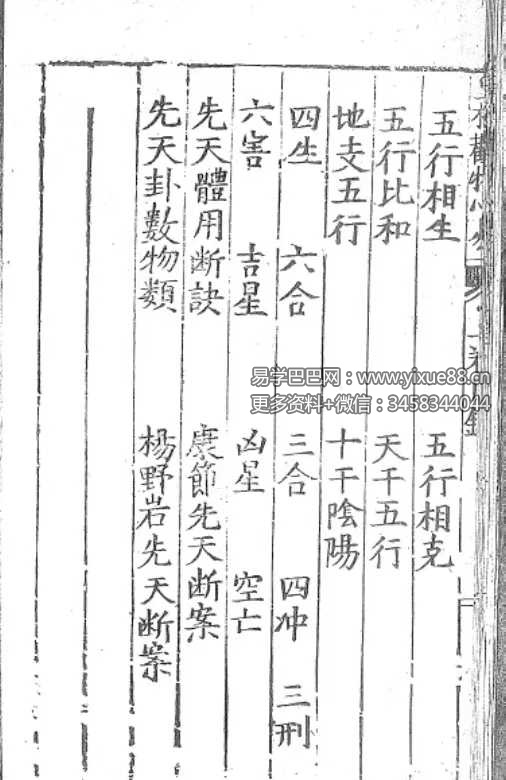 五行相生 五行相克
五行比和 天干五行
地支五行 十干陰陽
四生 六合 三合 四冲 三刑
六害 吉星 凶星 空亡
先天體用断訣 康節先天断案
先天卦數物類 楊野岩先天断案
易学巴巴网：www.yixue88.cn
更多资料+微信：3458344044